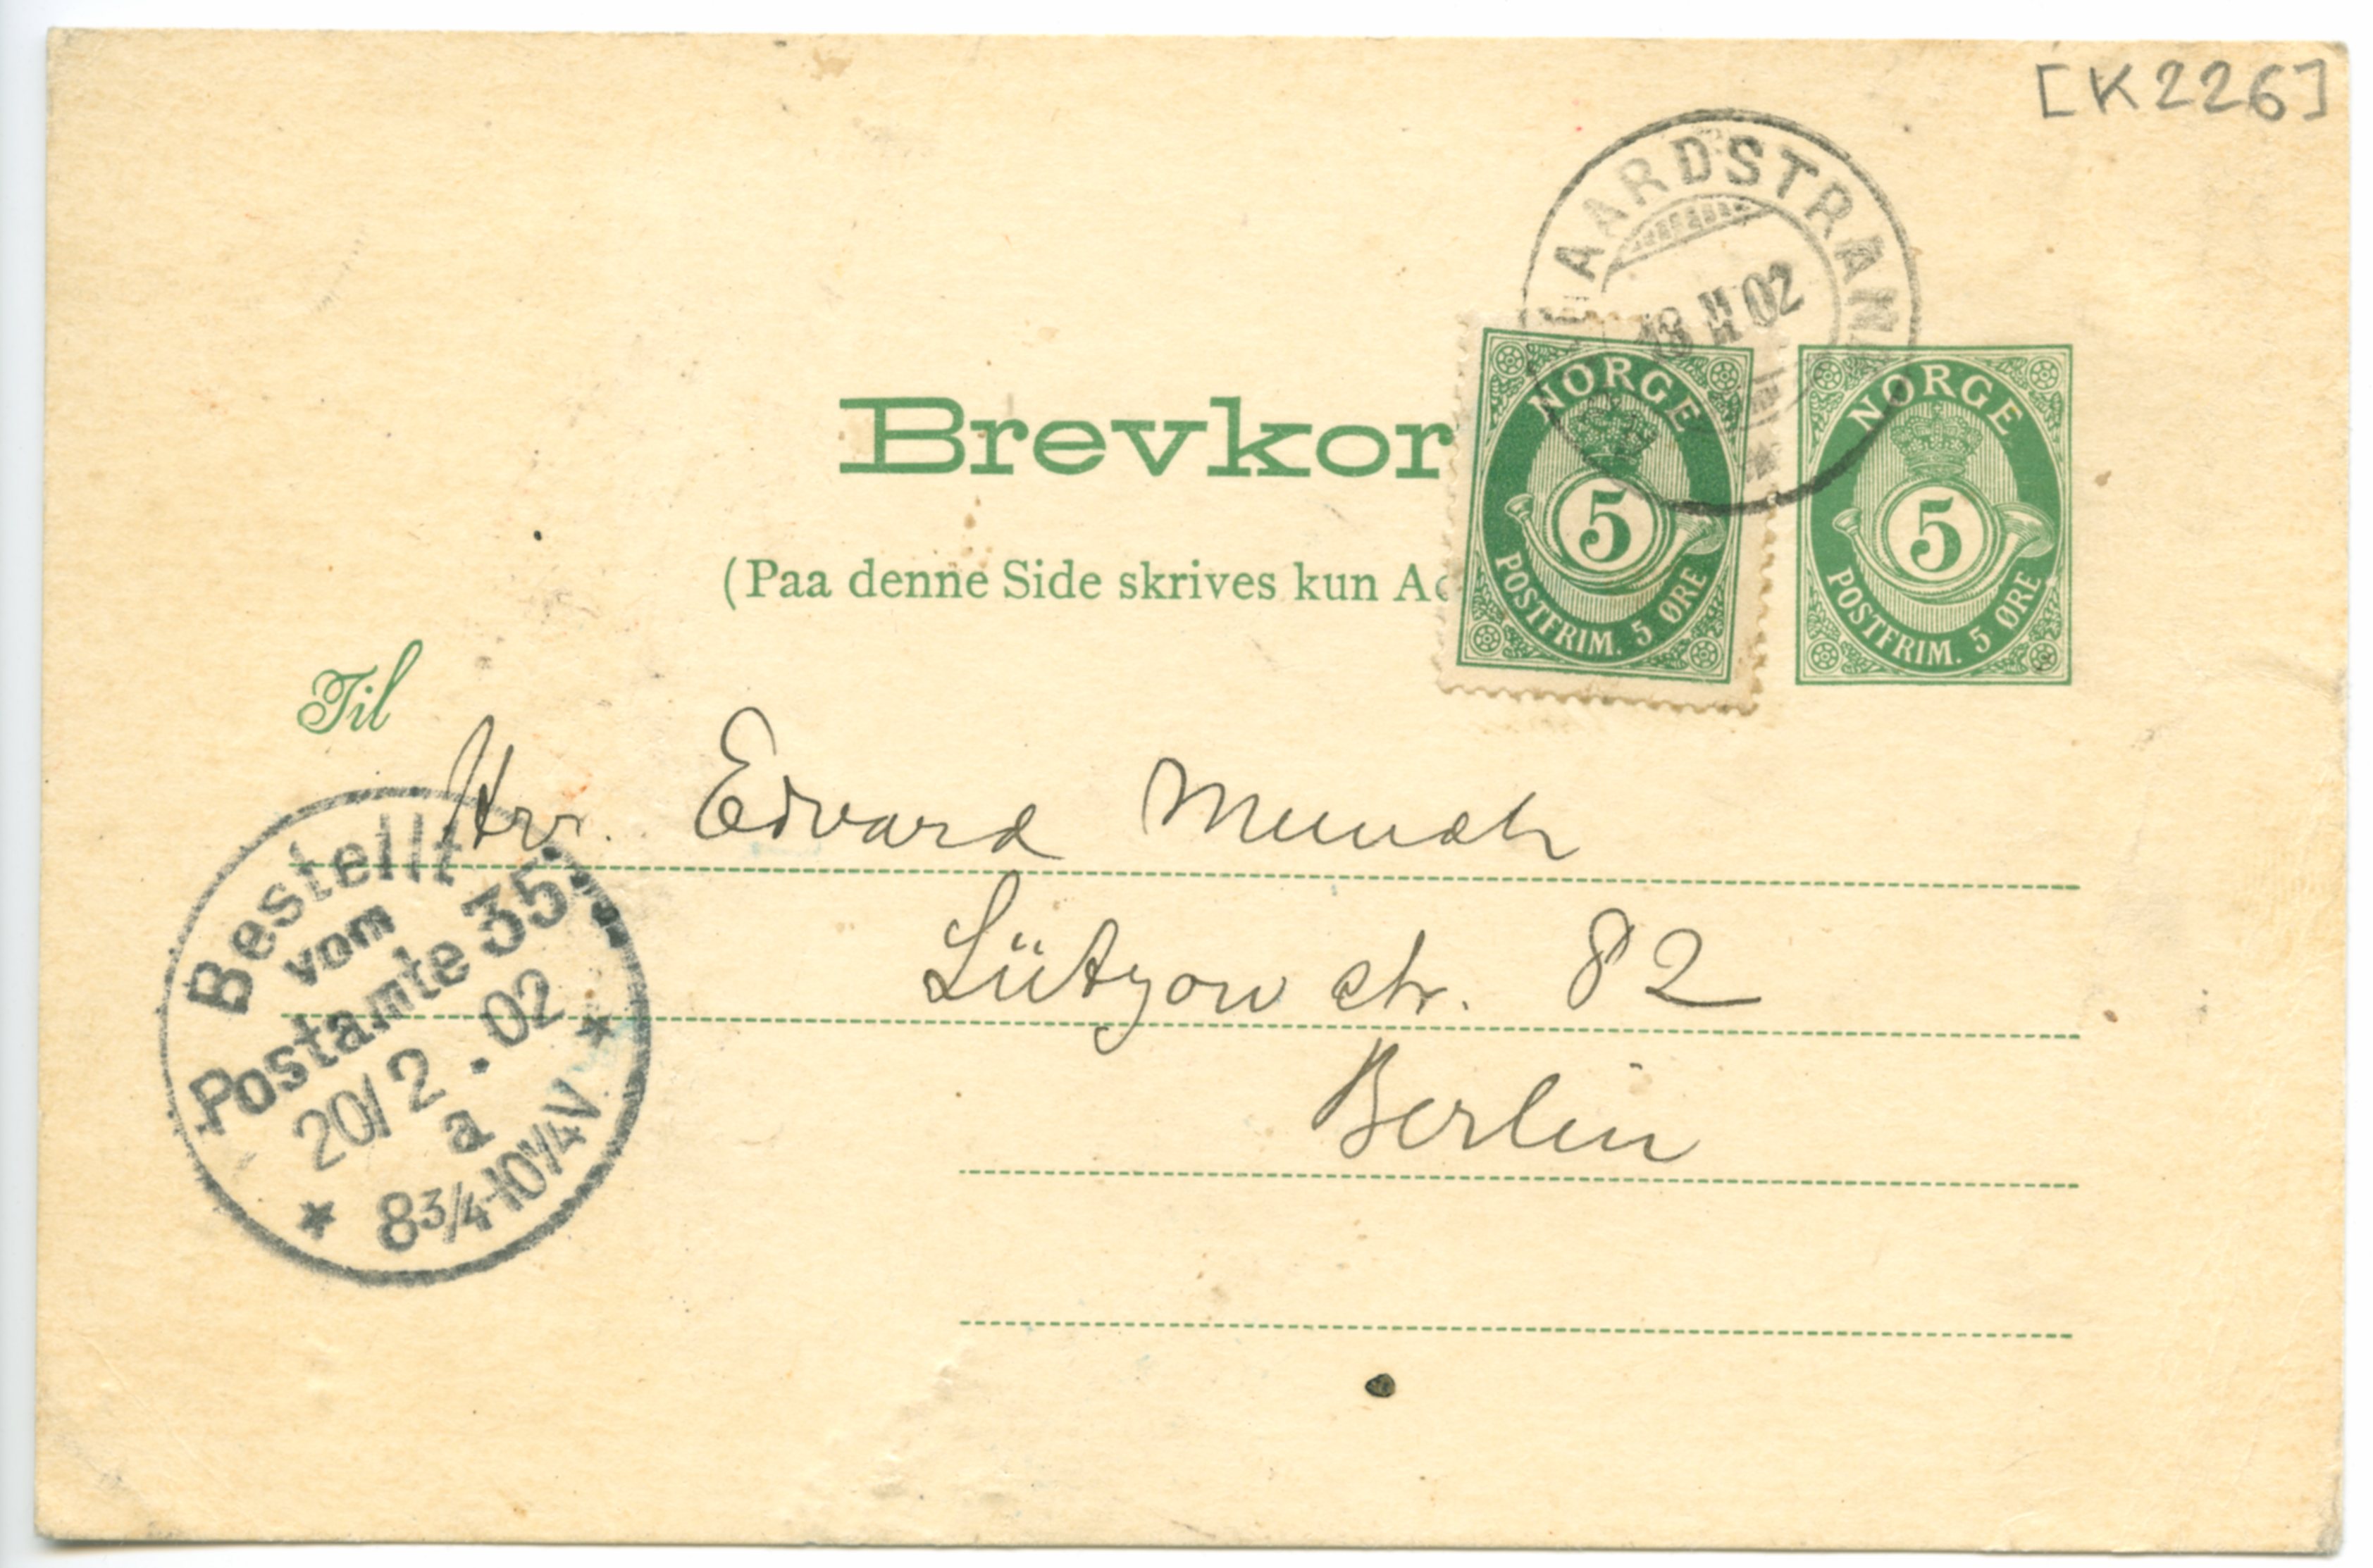 [K226]
AARDSTRAN
18 II 02
Brevkor
NORGE
5
POSTFRIM. 5 ØRE
NORGE
5
POSTFRIM. 5 ØRE
(Paa denne Side skrives kun Ad
Til
Hrr. Edvard Munch
Lützow str. 82
Berlin
Bestellt
vom
Postamte 35
20/2.02
a
8 3/4-10 1/4 V